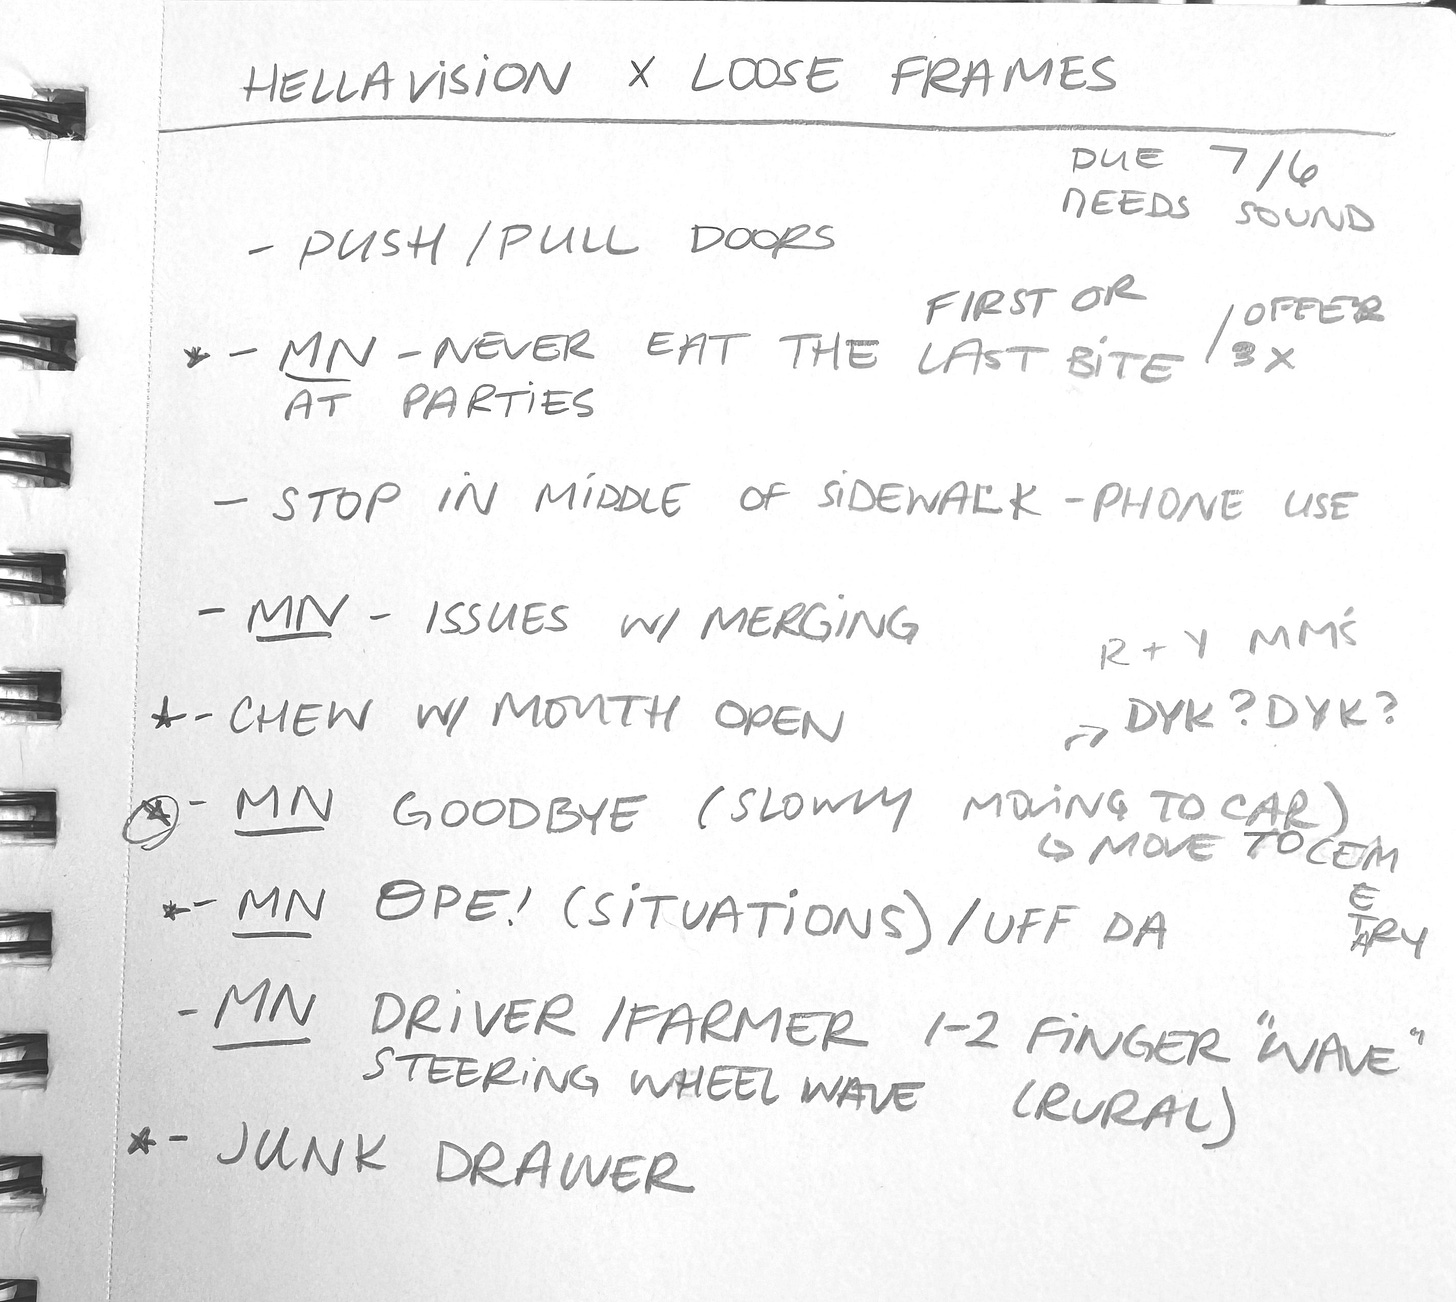 HELLAVISION X LOOSE FRAMES
DUE 7/6
NEEDS SOUND
- PUSH/PULL DOORS
FIRST OR
* - MN - NEVER EAT THE LAST BITE / OFFER 3X
AT PARTIES
- STOP IN MIDDLE OF SIDEWALK - PHONE USE
- MN - ISSUES W/ MERGING
R + Y MM'S
* - CHEW W/ MOUTH OPEN
→ DYK? DYK?
* - MN GOODBYE (SLOWLY MOVING TO CAR)
↳ MOVE TO CEMETARY
* - MN OPE! (SITUATIONS) / UFF DA
- MN DRIVER/FARMER 1-2 FINGER "WAVE"
STEERING WHEEL WAVE (RURAL)
* - JUNK DRAWER